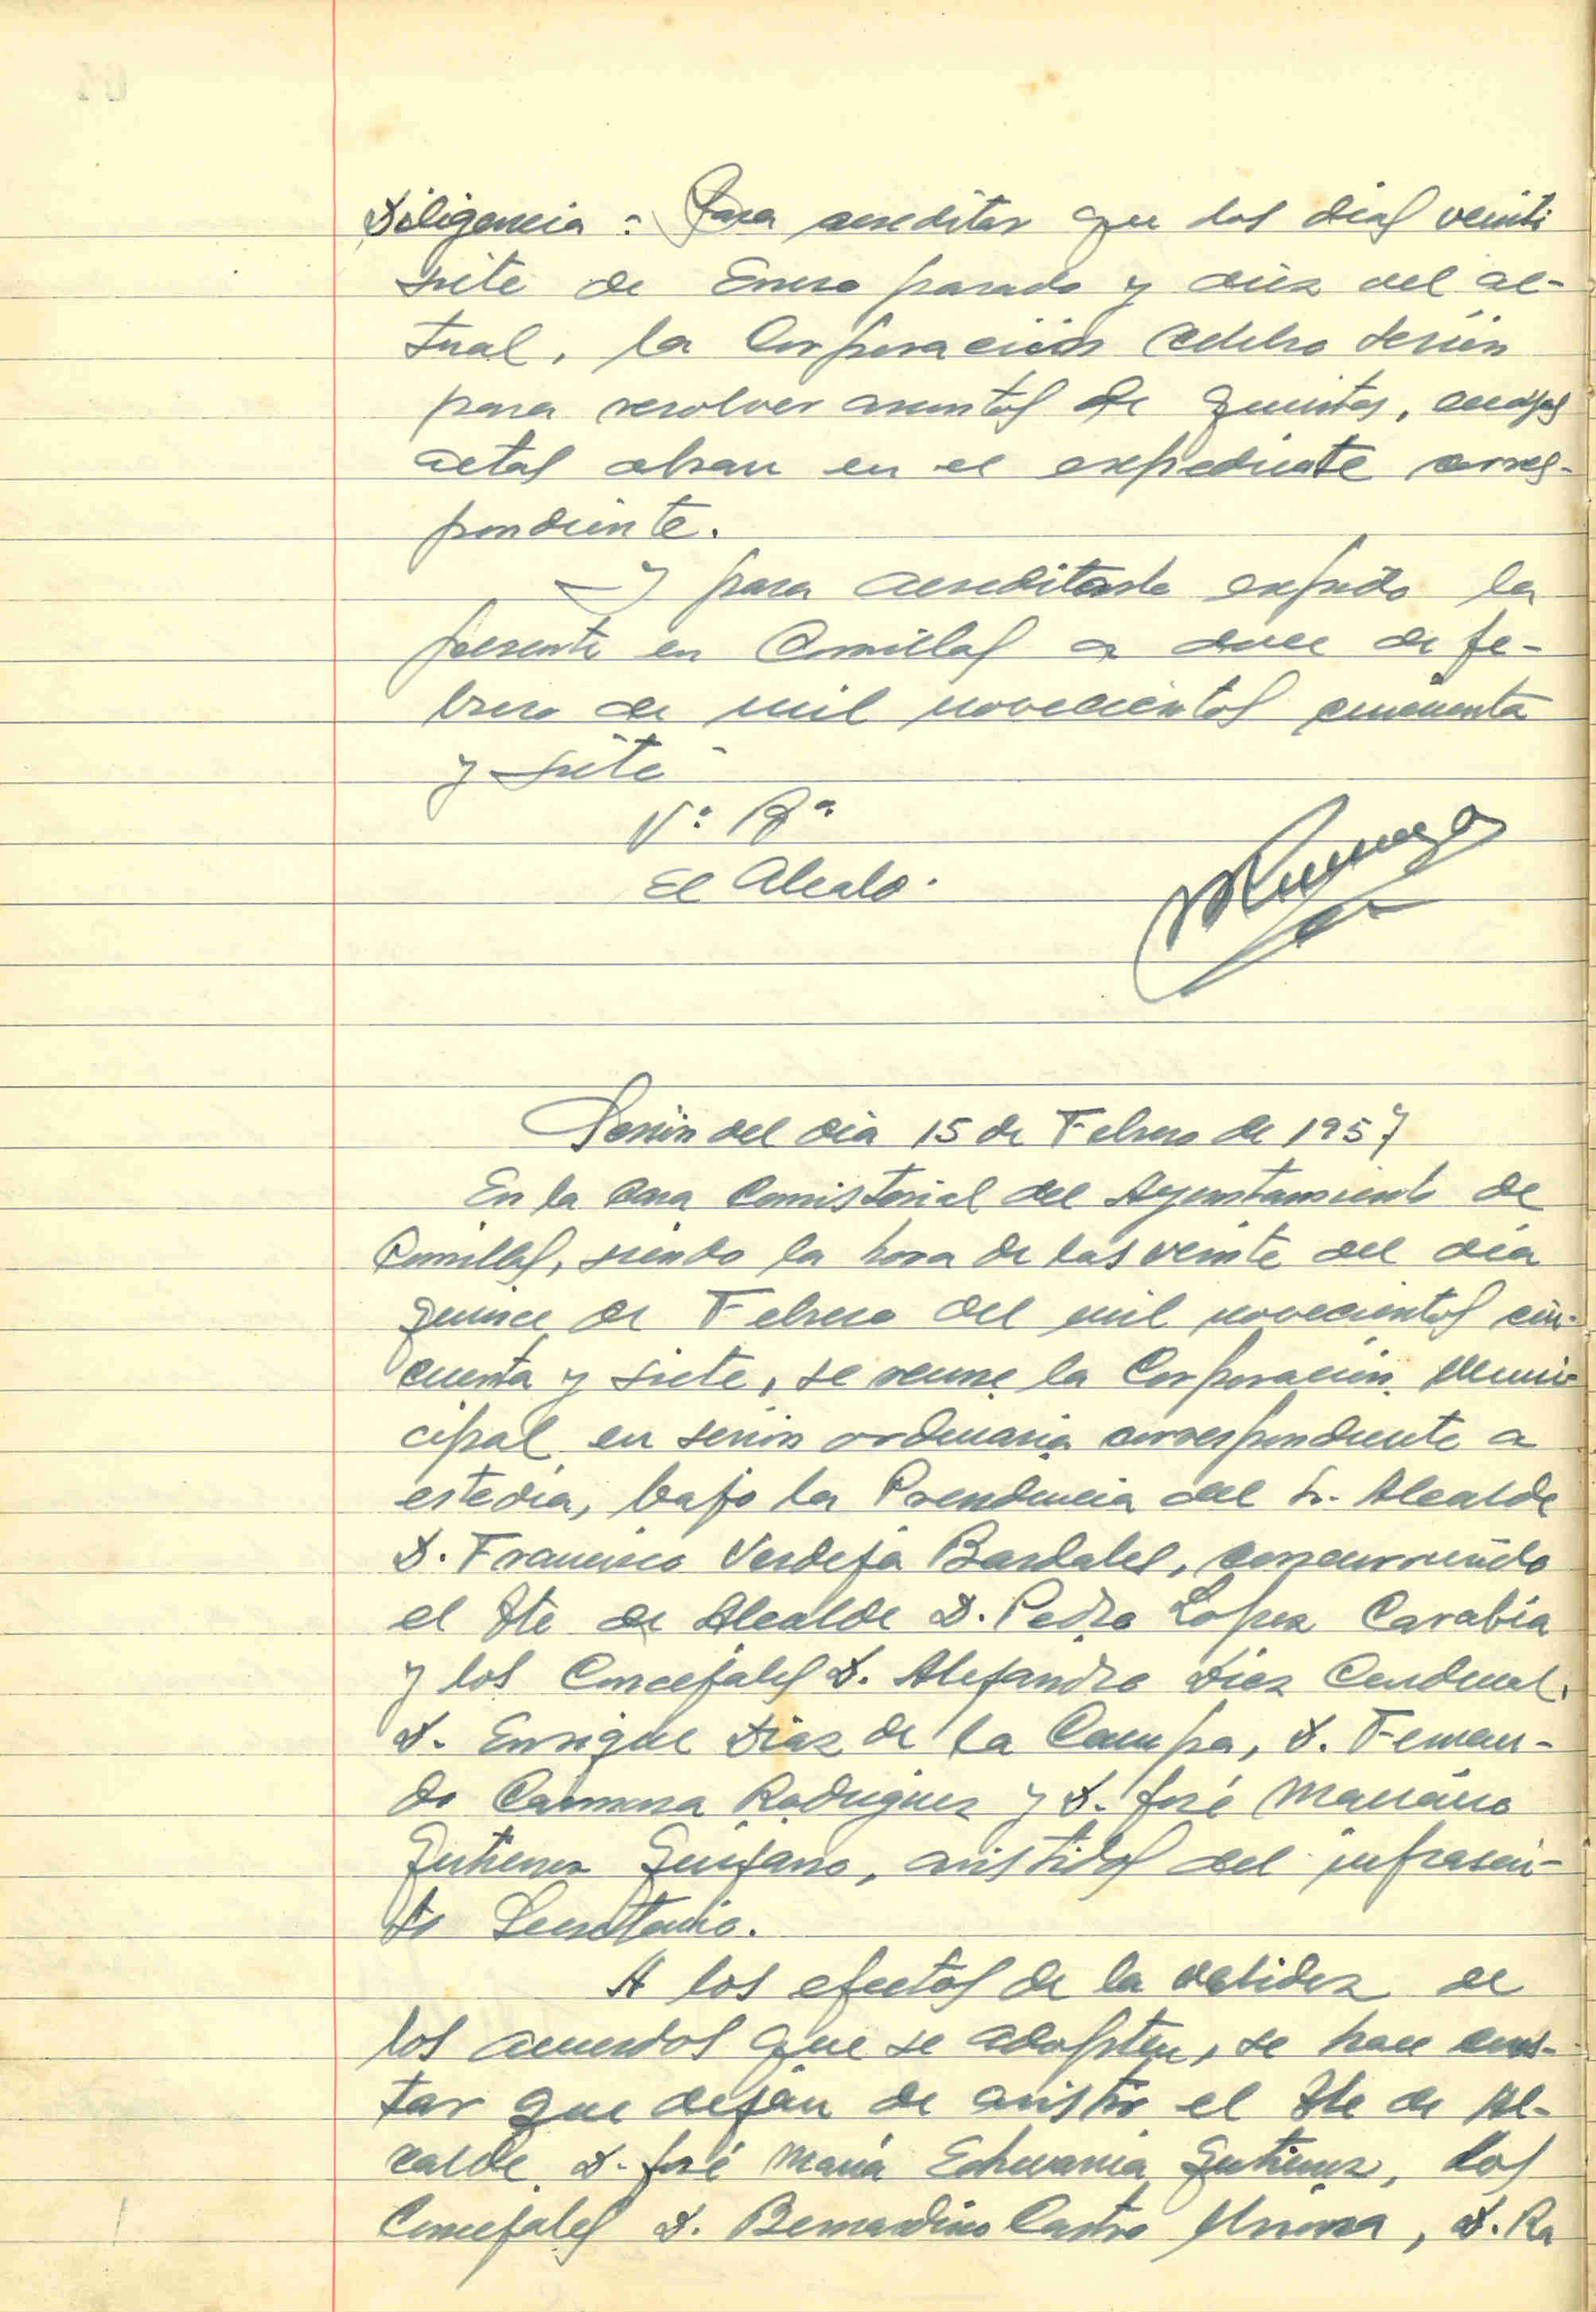 Diligencia : Para acreditar que los dias veinti
siete de Enero pasado y diez del ac-
tual, la Corporación celebro sesión
para resolver asuntos de quintas, cuyas
actas obran en el expediente corres-
pondiente.
Y para acreditarlo expido la
presente en Comillas a doce de fe-
brero de mil novecientos cincuenta
y siete -
Vº Bº
El Alcalde.
Sesión del dia 15 de Febrero de 1957
En la Casa Consistorial del Ayuntamiento de
Comillas, siendo la hora de las veinte del día
quince de Febrero del mil novecientos cin-
cuenta y siete, se reune la Corporación Muni-
cipal en sesión ordinaria correspondiente a
este día, bajo la Presidencia del Sr. Alcalde
D. Francisco Verdeja Bardales, concurriendo
el Tte de Alcalde D. Pedro Lopez Carabia
y los Concejales D. Alejandro Diez Cardenal,
D. Enrique Díaz de la Campa, D. Fernan-
do Carmona Rodriguez y D. José Mariano
Gutierrez Quijano, asistidos del infrascri-
to Secretario.
A los efectos de la validez de
los acuerdos que se adopten, se hace cons-
tar que dejan de asistir el Tte de Al-
calde D. José María Echevarria Gutierrez, los
Concejales D. Bernardino Castro, D. Ra